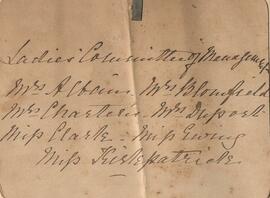 Ladies Committee of Management
Mrs Albain Mrs Blomfield
Mrs Charteris Mrs Duport
Miss Clark - Miss Ewing
Miss Kirkpatrick